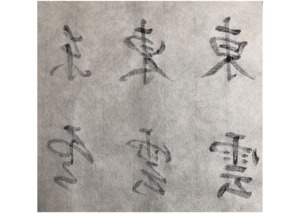 東雲
東雲
东雲